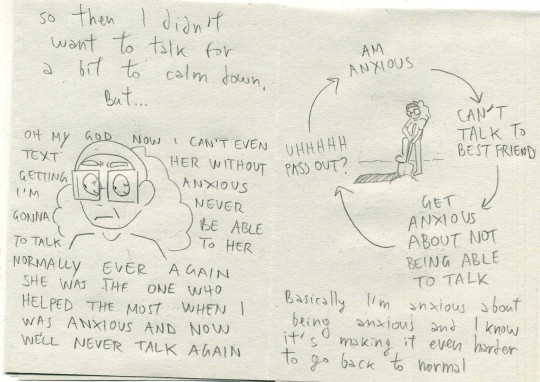 so then I didn't
want to talk for
a bit to calm down.
But...
OH MY GOD NOW I CAN'T EVEN
TEXT HER WITHOUT
GETTING ANXIOUS
I'M NEVER
GONNA BE ABLE
TO TALK TO HER
NORMALLY EVER AGAIN
SHE WAS THE ONE WHO
HELPED THE MOST WHEN I
WAS ANXIOUS AND NOW
WE'LL NEVER TALK AGAIN
AM
ANXIOUS
CAN'T
TALK TO
BEST FRIEND
GET
ANXIOUS
ABOUT NOT
BEING ABLE
TO TALK
UHHHHH
PASS OUT?
Basically I'm anxious about
being anxious and I know
it's making it even harder
to go back to normal